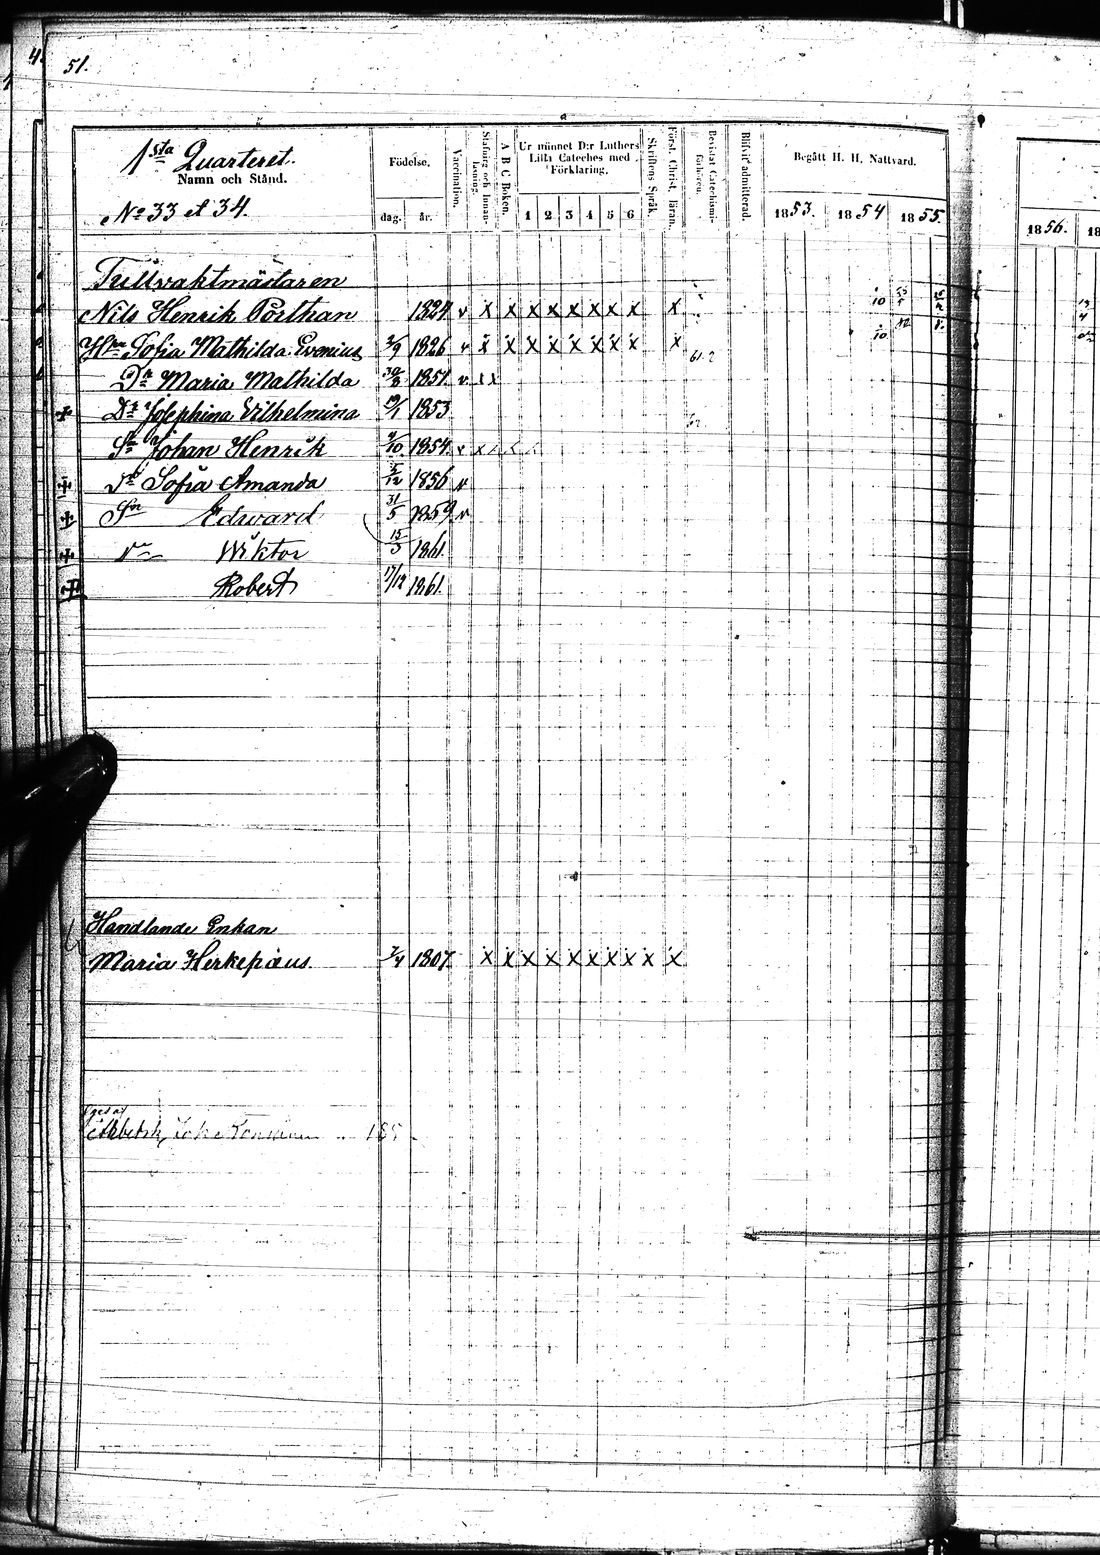 51.
1sta Quarteret.
Namn och Stånd.
No 33 et 34.
Födelse.
dag. år.
Vaccination.
Stafning och Innanläsning.
A B C Boken.
Ur minnet D:r Luthers
Lilla Cateches med
Förklaring.
1 2 3 4 5 6
Skriftens Språk.
Först. Christ. läran.
Bevistat Catechismi-
förhören.
Blifvit admitterad.
Begått H. H. Nattvard.
1853. 1854 1855.
1856.
Tullvaktmästaren
Nils Henrik Porthan 1824 v x x x x x x x x x
Hru Sofia Mathilda Evenius 2/9 1826 v x x x x x x x x x
Dr Maria Mathilda 30/8 1851 v x x
Dr Josephina Vilhelmina 19/1 1853
Sn Johan Henrik 1854
Dr Sofia Amanda 5/12 1856 v
Sn Edward 31/5 1859 v
Wiktor 15/3 1861.
Robert 17/12 1861.
Handlande Enkan
Maria Herkepæus. 7/4 1807 x x x x x x x x x x